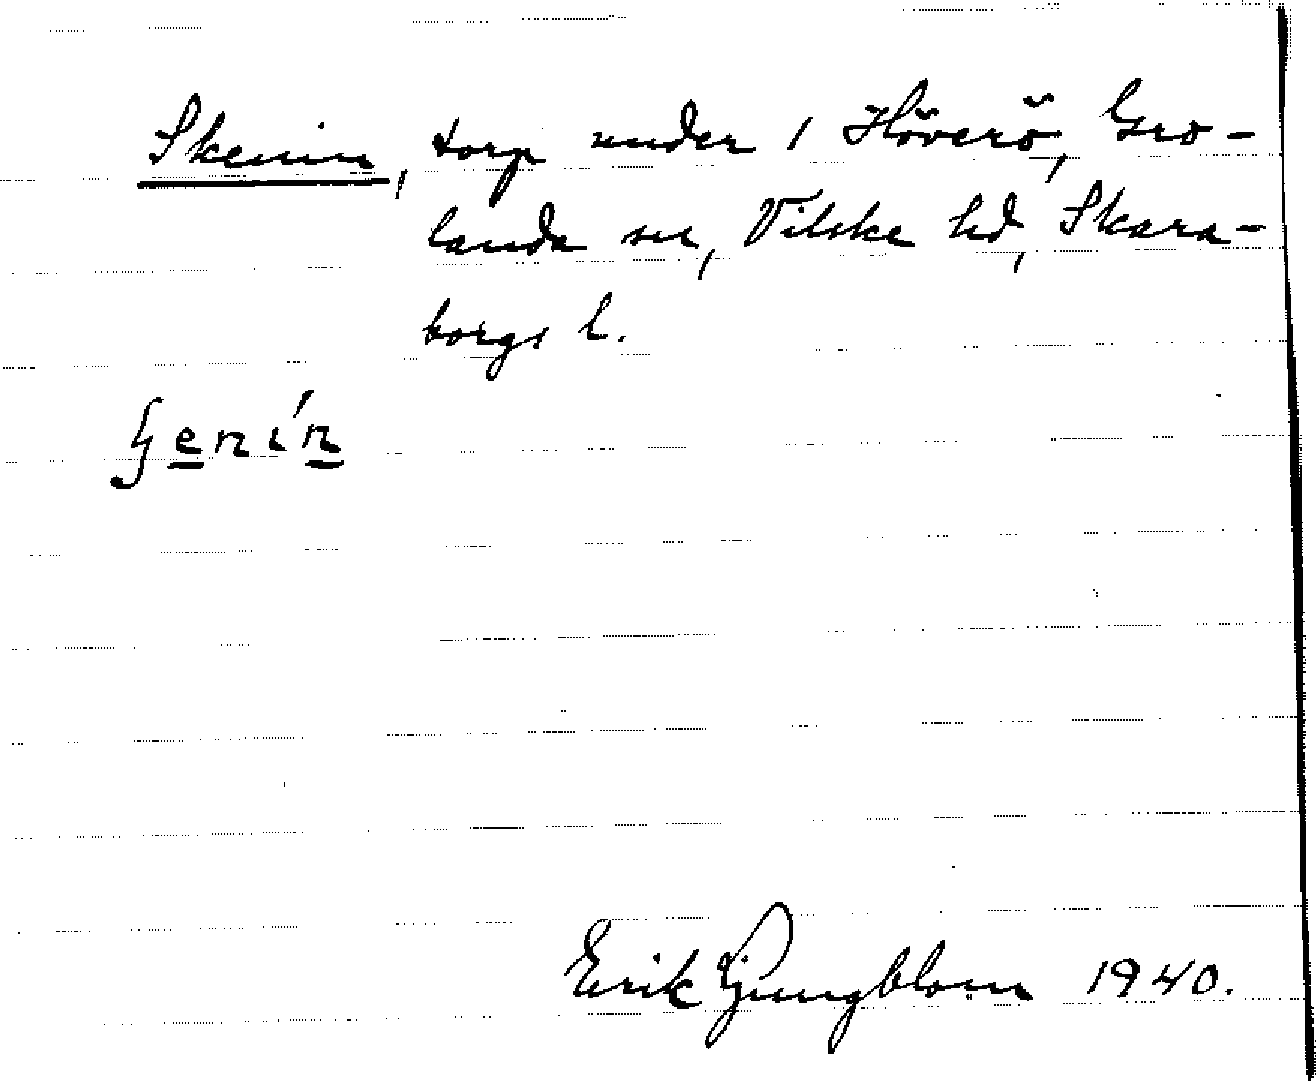 Skenin, torp under 1 Höverö, Gro-
landa sn, Vilske hd, Skara-
borgs l.
ʃenín
Erik Ljungblom 1940.